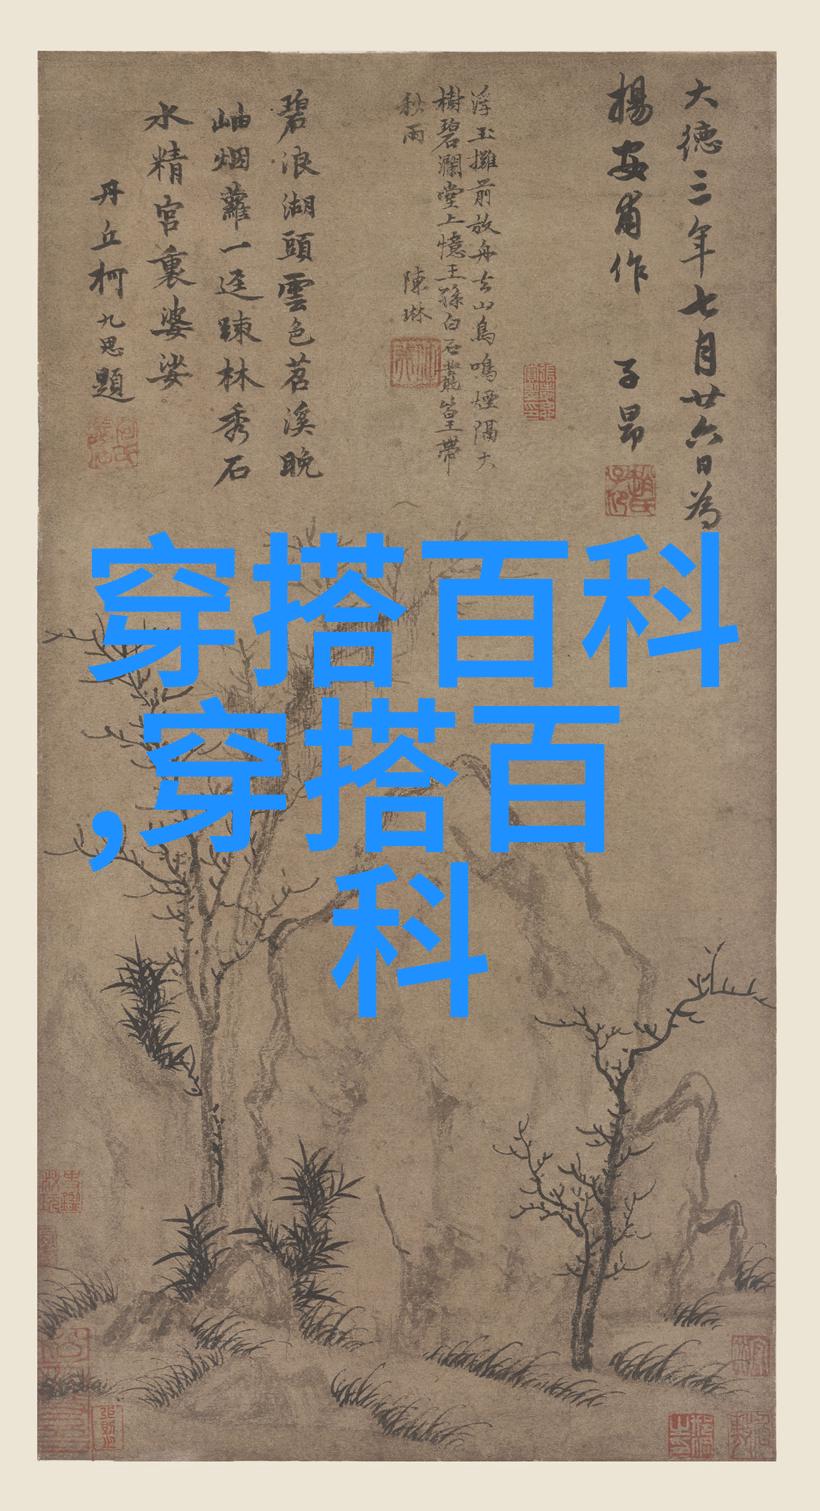 大德三年七月廿六日為
楊安甫作 子昂
浮玉攤前放舟去山鳥鳴煙隔大
樹碧瀾堂上憶王孫白石叢篁帶
秋雨 陳琳
碧浪湖頭雲色茗溪晚
岫烟蘿一逕踈林秀石
水精宮裏婆娑
丹丘柯九思題
穿搭百科
,穿搭百
科